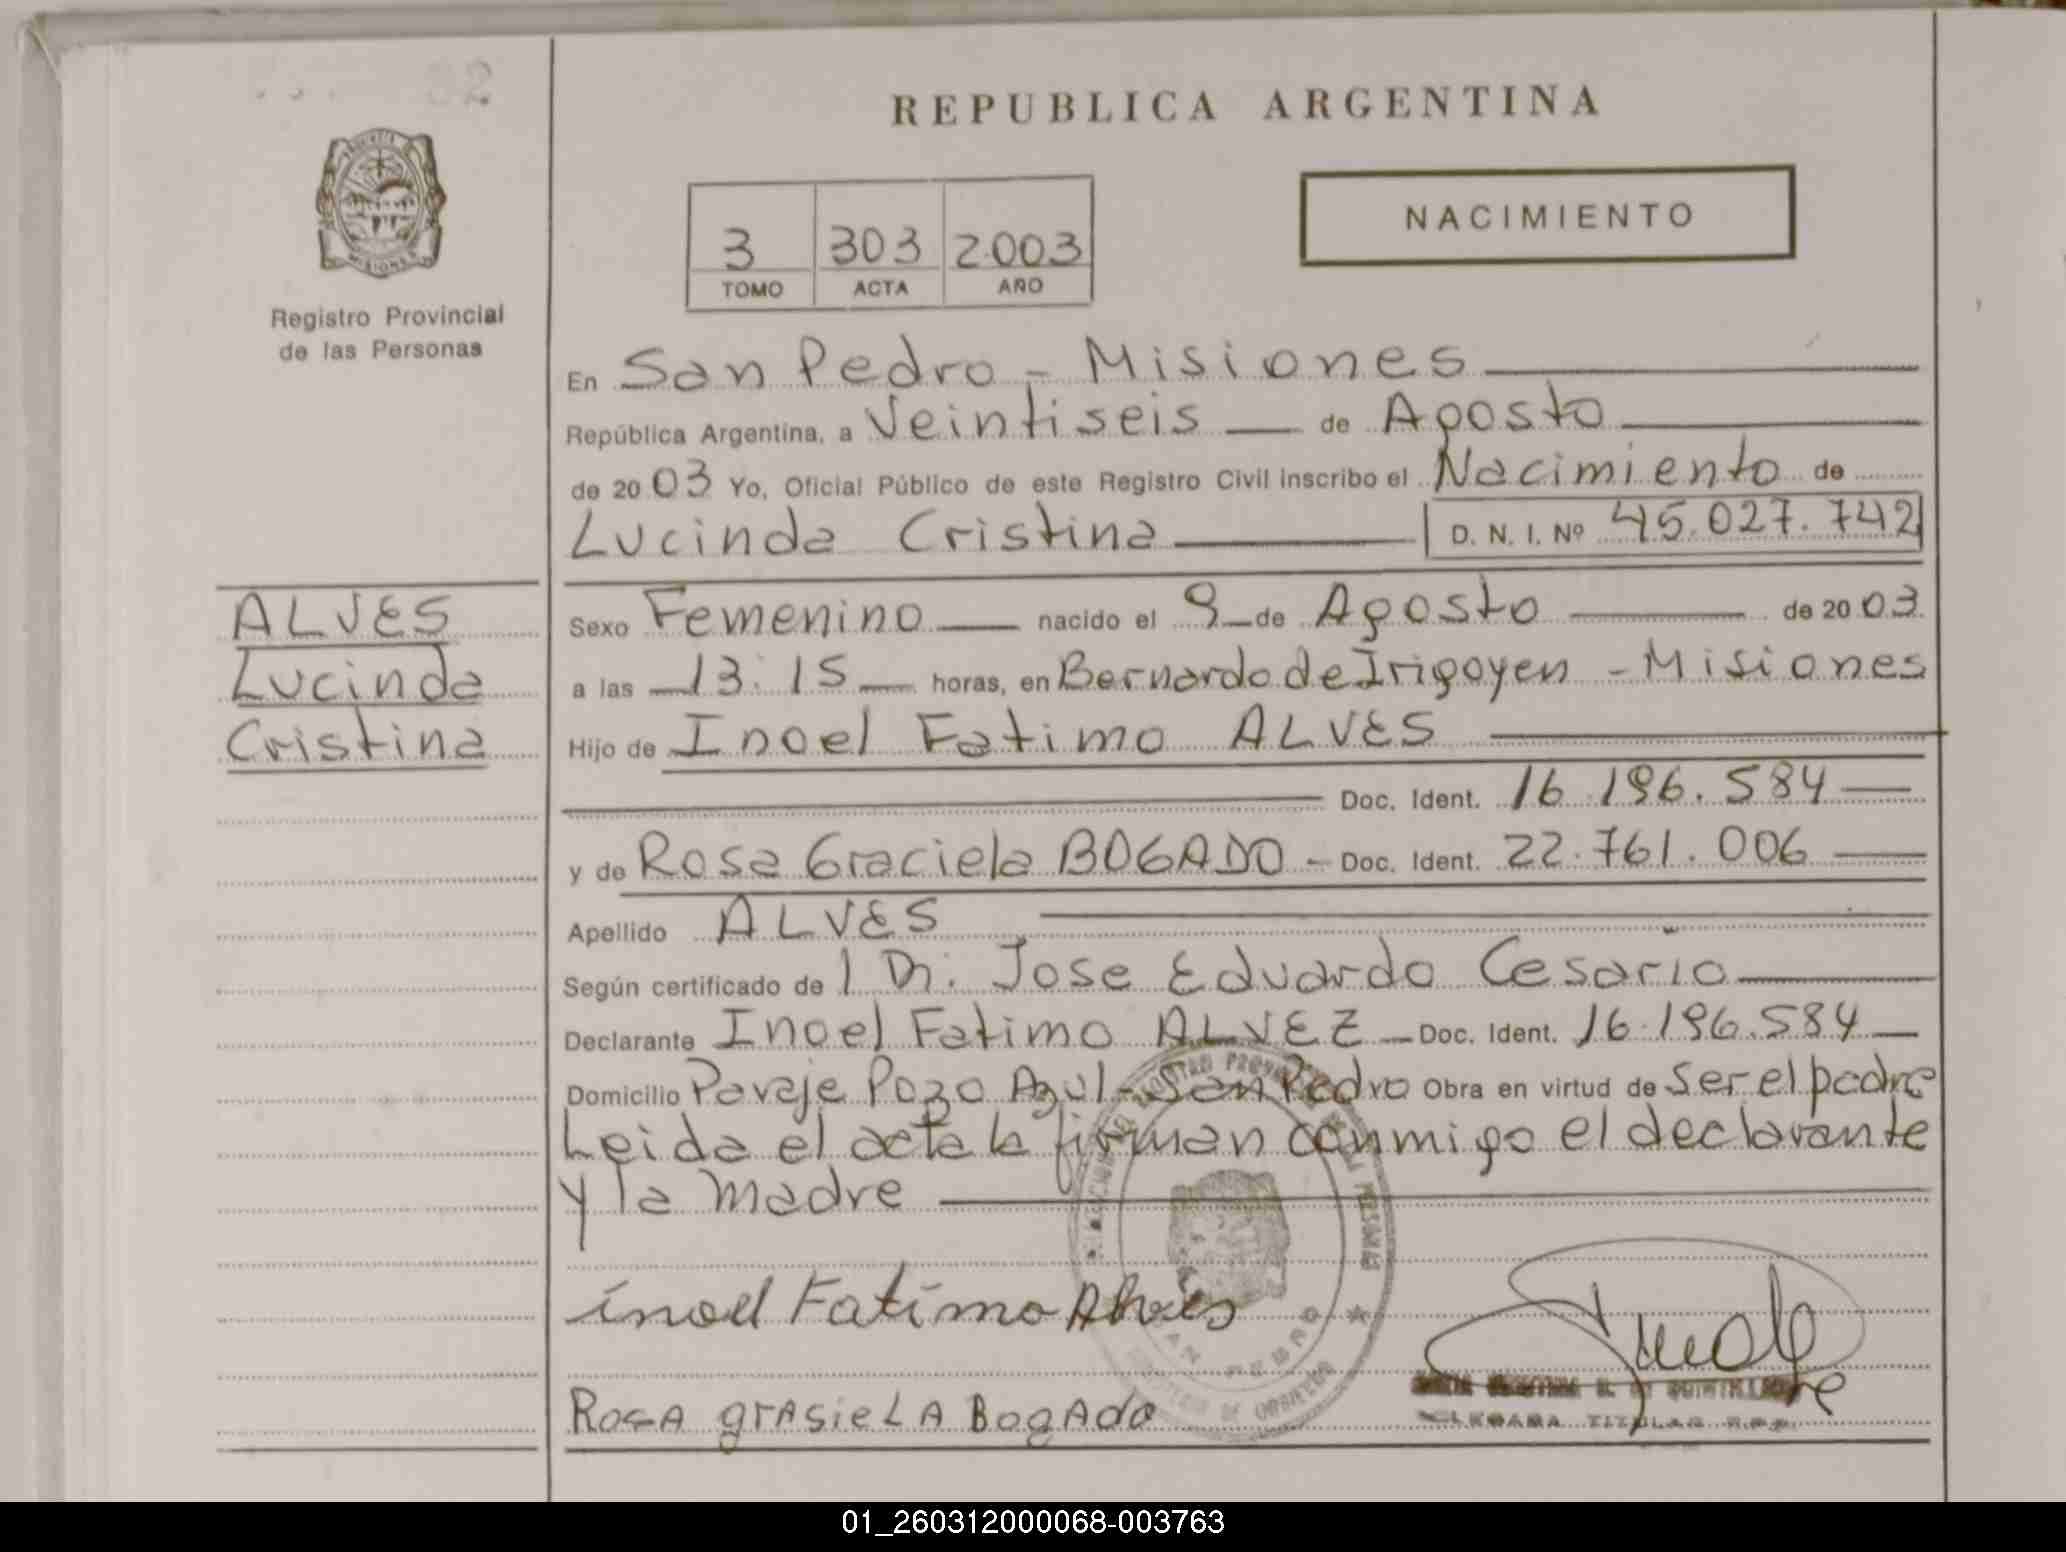 32
REPUBLICA ARGENTINA
NACIMIENTO
3 303 2003
TOMO ACTA AÑO
MISIONES
Registro Provincial
de las Personas
En San Pedro - Misiones
República Argentina, a Veintiseis de Agosto
de 2003 Yo, Oficial Público de este Registro Civil inscribo el Nacimiento de
Lucinda Cristina D. N. I. Nº 45.027.742
ALVES
Lucinda
Cristina
Sexo Femenino nacido el 9 de Agosto de 2003
a las 13:15 horas, en Bernardo de Irigoyen - Misiones
Hijo de Inoel Fatimo ALVES
Doc. Ident. 16.196.584
y de Rosa Graciela BOGADO - Doc. Ident. 22.761.006
Apellido ALVES
Según certificado de l Dr. Jose Eduardo Cesario
Declarante Inoel Fatimo ALVEZ - Doc. Ident. 16.196.584
Domicilio Paraje Pozo Azul - San Pedro Obra en virtud de ser el padre
Leida el acta la firman conmigo el declarante
y la madre
inoel Fatimo Alves
Rosa grasieLA BogAdo
TITULAR
01_260312000068-003763